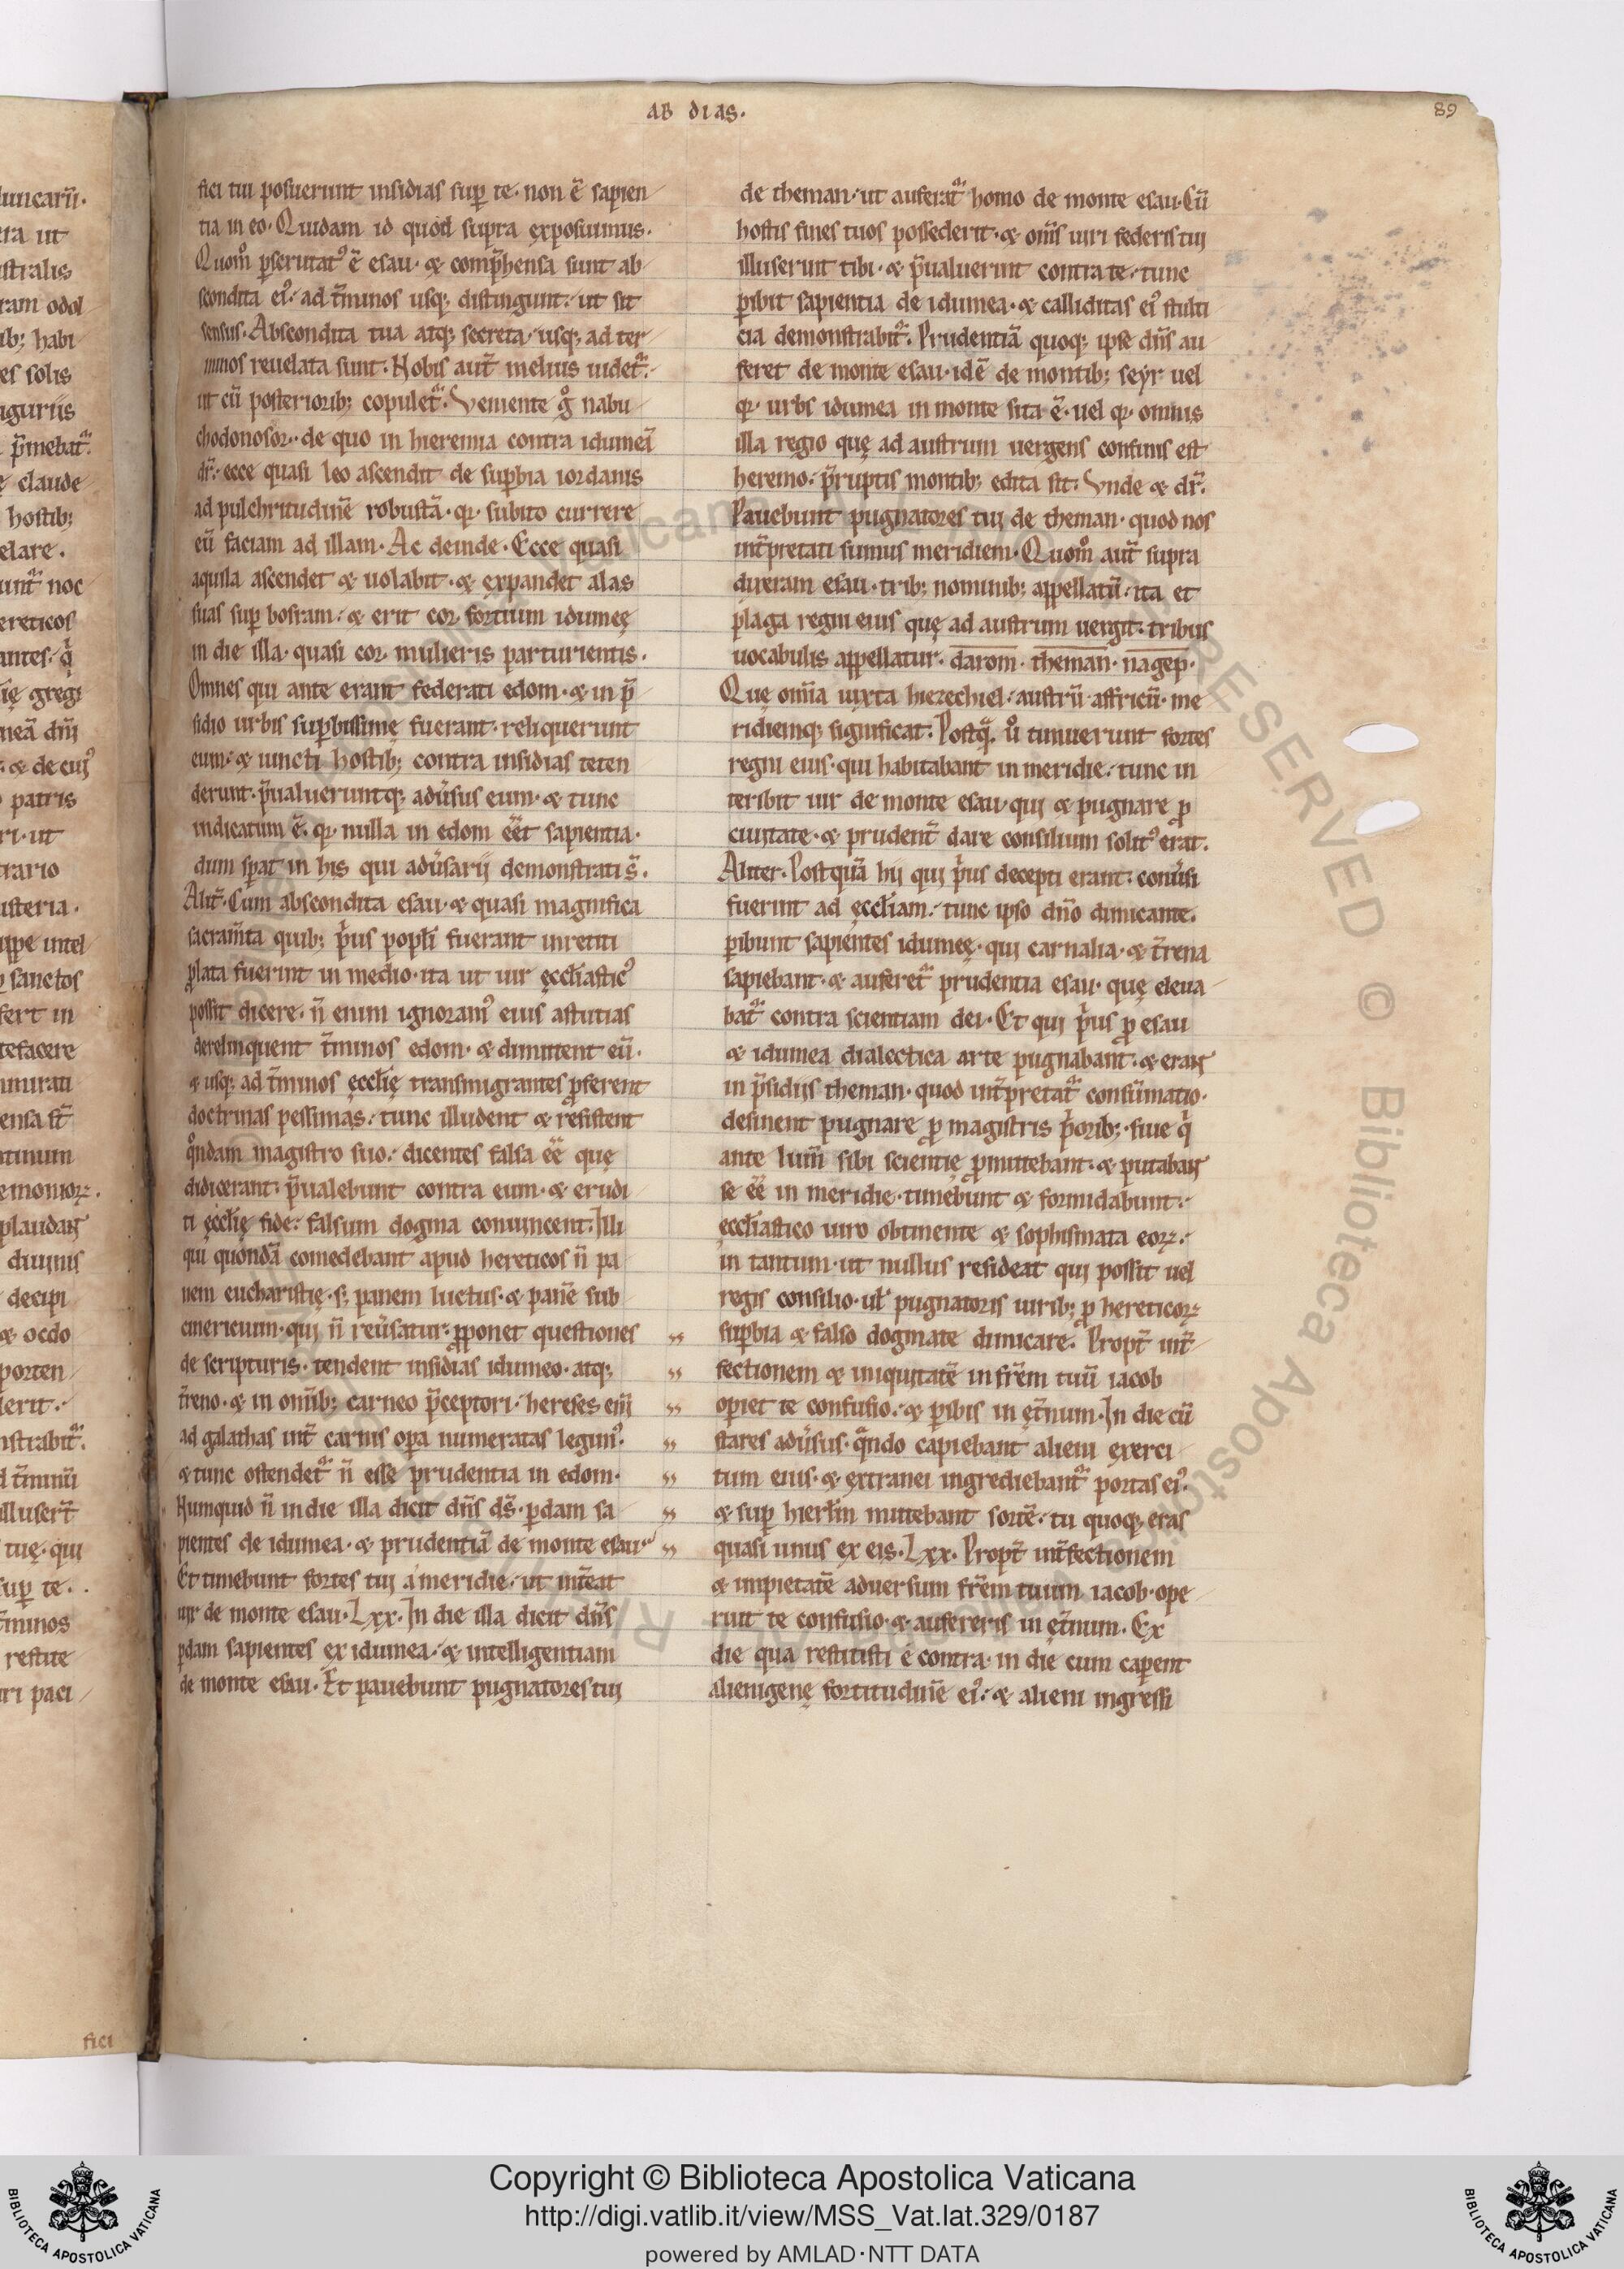 AB DIAS.
89
fici tui posuerunt insidias sup̱ te· non ē sapien
tia in eo· Quidam id quod supra ęxposuimus·
Quom̊ ꝑscrutatꝰ ē esau· ⁊ comp̄hensa sunt ab
scondita eiꝰ· ad t̄minos usq; distingunt· ut sit
sensus· Abscondita tua atq; secreta· usq; ad ter
minos reuelata sunt· Nobis aut̄ melius uidet᷑·
ut cū posteriorib; copulet᷑· Veniente g̊ nabu
chodonosor· de quo in hieremia contra idumeā
dr̄· ecce quasi leo ascendit de suꝑbia iordanis
ad pulchritudinē robustā· qr· subito currere
eū faciam ad illam· Ac deinde· Ecce quasi
aquila ascendet ⁊ uolabit· ⁊ ęxpandet alas
suas suꝑ bosram· ⁊ erit cor fortium idumeę
in die illa· quasi cor mulieris parturientis·
Omnes qui ante erant federati edom· ⁊ in p̄
sidio urbis suꝑbissimę fuerant· reliquerunt
eum· ⁊ iuncti hostib; contra insidias teten
derunt· p̄ualueruntq; adūsus eum· ⁊ tunc
indicatum ē· qr· nulla in edom eēt sapientia·
dum sꝑat in his qui adūsarij demonstrati s̄·
Alit̄· Cum abscondita esau· ⁊ quasi magnifica
sacram̄ta quib; pⁱus popłi fuerant inretiti
ꝓlata fuerint in medio· ita ut uir ęccłiasticꝰ
possit dicere· n̄ enim ignoramꝰ eius astutias
derelinquent t̄minos edom· ⁊ dimittent eū·
⁊ usq; ad t̄minos ęccłię transmigrantes ꝓferent
doctrinas pessimas· tunc illudent ⁊ resistent
q̊ndam magistro suo· dicentes falsa eē̄ quę
didicerant· p̄ualebunt contra eum· ⁊ erudi
ti ęccłię fide· falsum dogma conuincent· Illi
qui quondā comedebant apud hereticos n̄ pa
nem eucharistię· s; panem luctus· ⁊ panē sub
cinericium· qui n̄ reūsatur· ꝓponet questiones
de scripturis· tendent insidias idumeo· atq;
t̄reno· ⁊ in om̄ib; carneo p̄ceptori· hereses eni
ad galathas int̄ carnis oꝑa numeratas legimꝰ·
⁊ tunc ostendet᷑ n̄ esse prudentia in edom·
Numquid n̄ in die illa dicit dn̄s ds̄· ꝑdam sa
pientes de idumea· ⁊ prudentiā de monte esau·
Et timebunt fortes tui a meridie· ut int̄eat
uir de monte esau· Lxx· In die illa dicit dn̄s
ꝑdam sapientes ex idumea· ⁊ intelligentiam
de monte esau· Et pauebunt pugnatores tui
de theman· ut auferat᷑ homo de monte esau· Cū
hostis fines tuos possederit· ⁊ om̄s uiri federis tui
illuserint tibi· ⁊ p̄ualuerint contra te· tunc
ꝑibit sapientia de idumea· ⁊ calliditas eiꝰ stulti
cia demonstrabit᷑· Prudentiā quoq; ipse dn̄s au
feret de monte esau· idē de montib; seyr uel
qr· urbs idumea in monte sita ē· uel qr· omnis
illa regio quę ad austrum uergens confinis est
heremo· p̄ruptis montib; edita sit· Vnde ⁊ dr̄·
Pauebunt pugnatores tui de theman· quod nos
int̄pretati sumus meridiem· Quom̊ aut̄ supra
dixeram esau· trib; nominib; appellatū· ita et
plaga regni eius quę ad austrum uergit· tribus
uocabulis appellatur· darom· theman· nagep·
Quę om̄ia iuxta hiezechiel· austrū· affricū· me
ridiemq; significat· Postq̄· ů timuerunt fortes
regni eius· qui habitabant in meridie· tunc in
teribit uir de monte esau· qui ⁊ pugnare ꝓ
ciuitate· ⁊ prudent̄ dare consilium solitꝰ erat·
Aliter· Postquā hij qui pⁱus decepti erant· conūsi
fuerint ad ęccłiam· tunc ipso dn̄o dimicante·
ꝑibunt sapientes idumeę· qui carnalia· ⁊ t̄rena
sapiebant· ⁊ auferet᷑ prudentia esau· quę eleua
bat᷑ contra scientiam dei· Et qui pⁱus ꝓ esau
⁊ idumea dialectica arte pugnabant· ⁊ erant
in p̄sidijs theman· quod int̄pretat᷑ consūmatio·
desinent pugnare ꝓ magistris pⁱorib;· siue qⁱ
ante lum̄ sibi scientię ꝓmittebant· ⁊ putabant
se eē̄ in meridie· timebunt ⁊ formidabunt·
ęccłiastico uiro obtinente ⁊ sophismata eoꝝ·
in tantum· ut nullus resideat qui possit uel
regis consilio· uł pugnatoris uirib; ꝓ hereticoꝝ
suꝑbia ⁊ falso dogmate dimicare· Propt̄ int̄
fectionem ⁊ iniquitatē in fr̄em tuū iacob
operiet te confusio· ⁊ ꝑibis in ęt̄num· In die cū
stares adūsus· qᷓndo capiebant alieni ęxerci
tum eius· ⁊ ęxtranei ingrediebant᷑ portas eiꝰ·
⁊ suꝑ hierłm mittebant sortē· tu quoq; eras
quasi unus ęx eis· Lxx· Propt̄ int̄fectionem
⁊ impietatē aduersum fr̄em tuum iacob· ope
riet te confusio· ⁊ aufereris in ęt̄num· Ex
die qua restitisti e contra· in die cum caꝑent
alienigenę fortitudinē eiꝰ· ⁊ alieni ingressi
fici
Copyright © Biblioteca Apostolica Vaticana
http://digi.vatlib.it/view/MSS_Vat.lat.329/0187
powered by AMLAD·NTT DATA